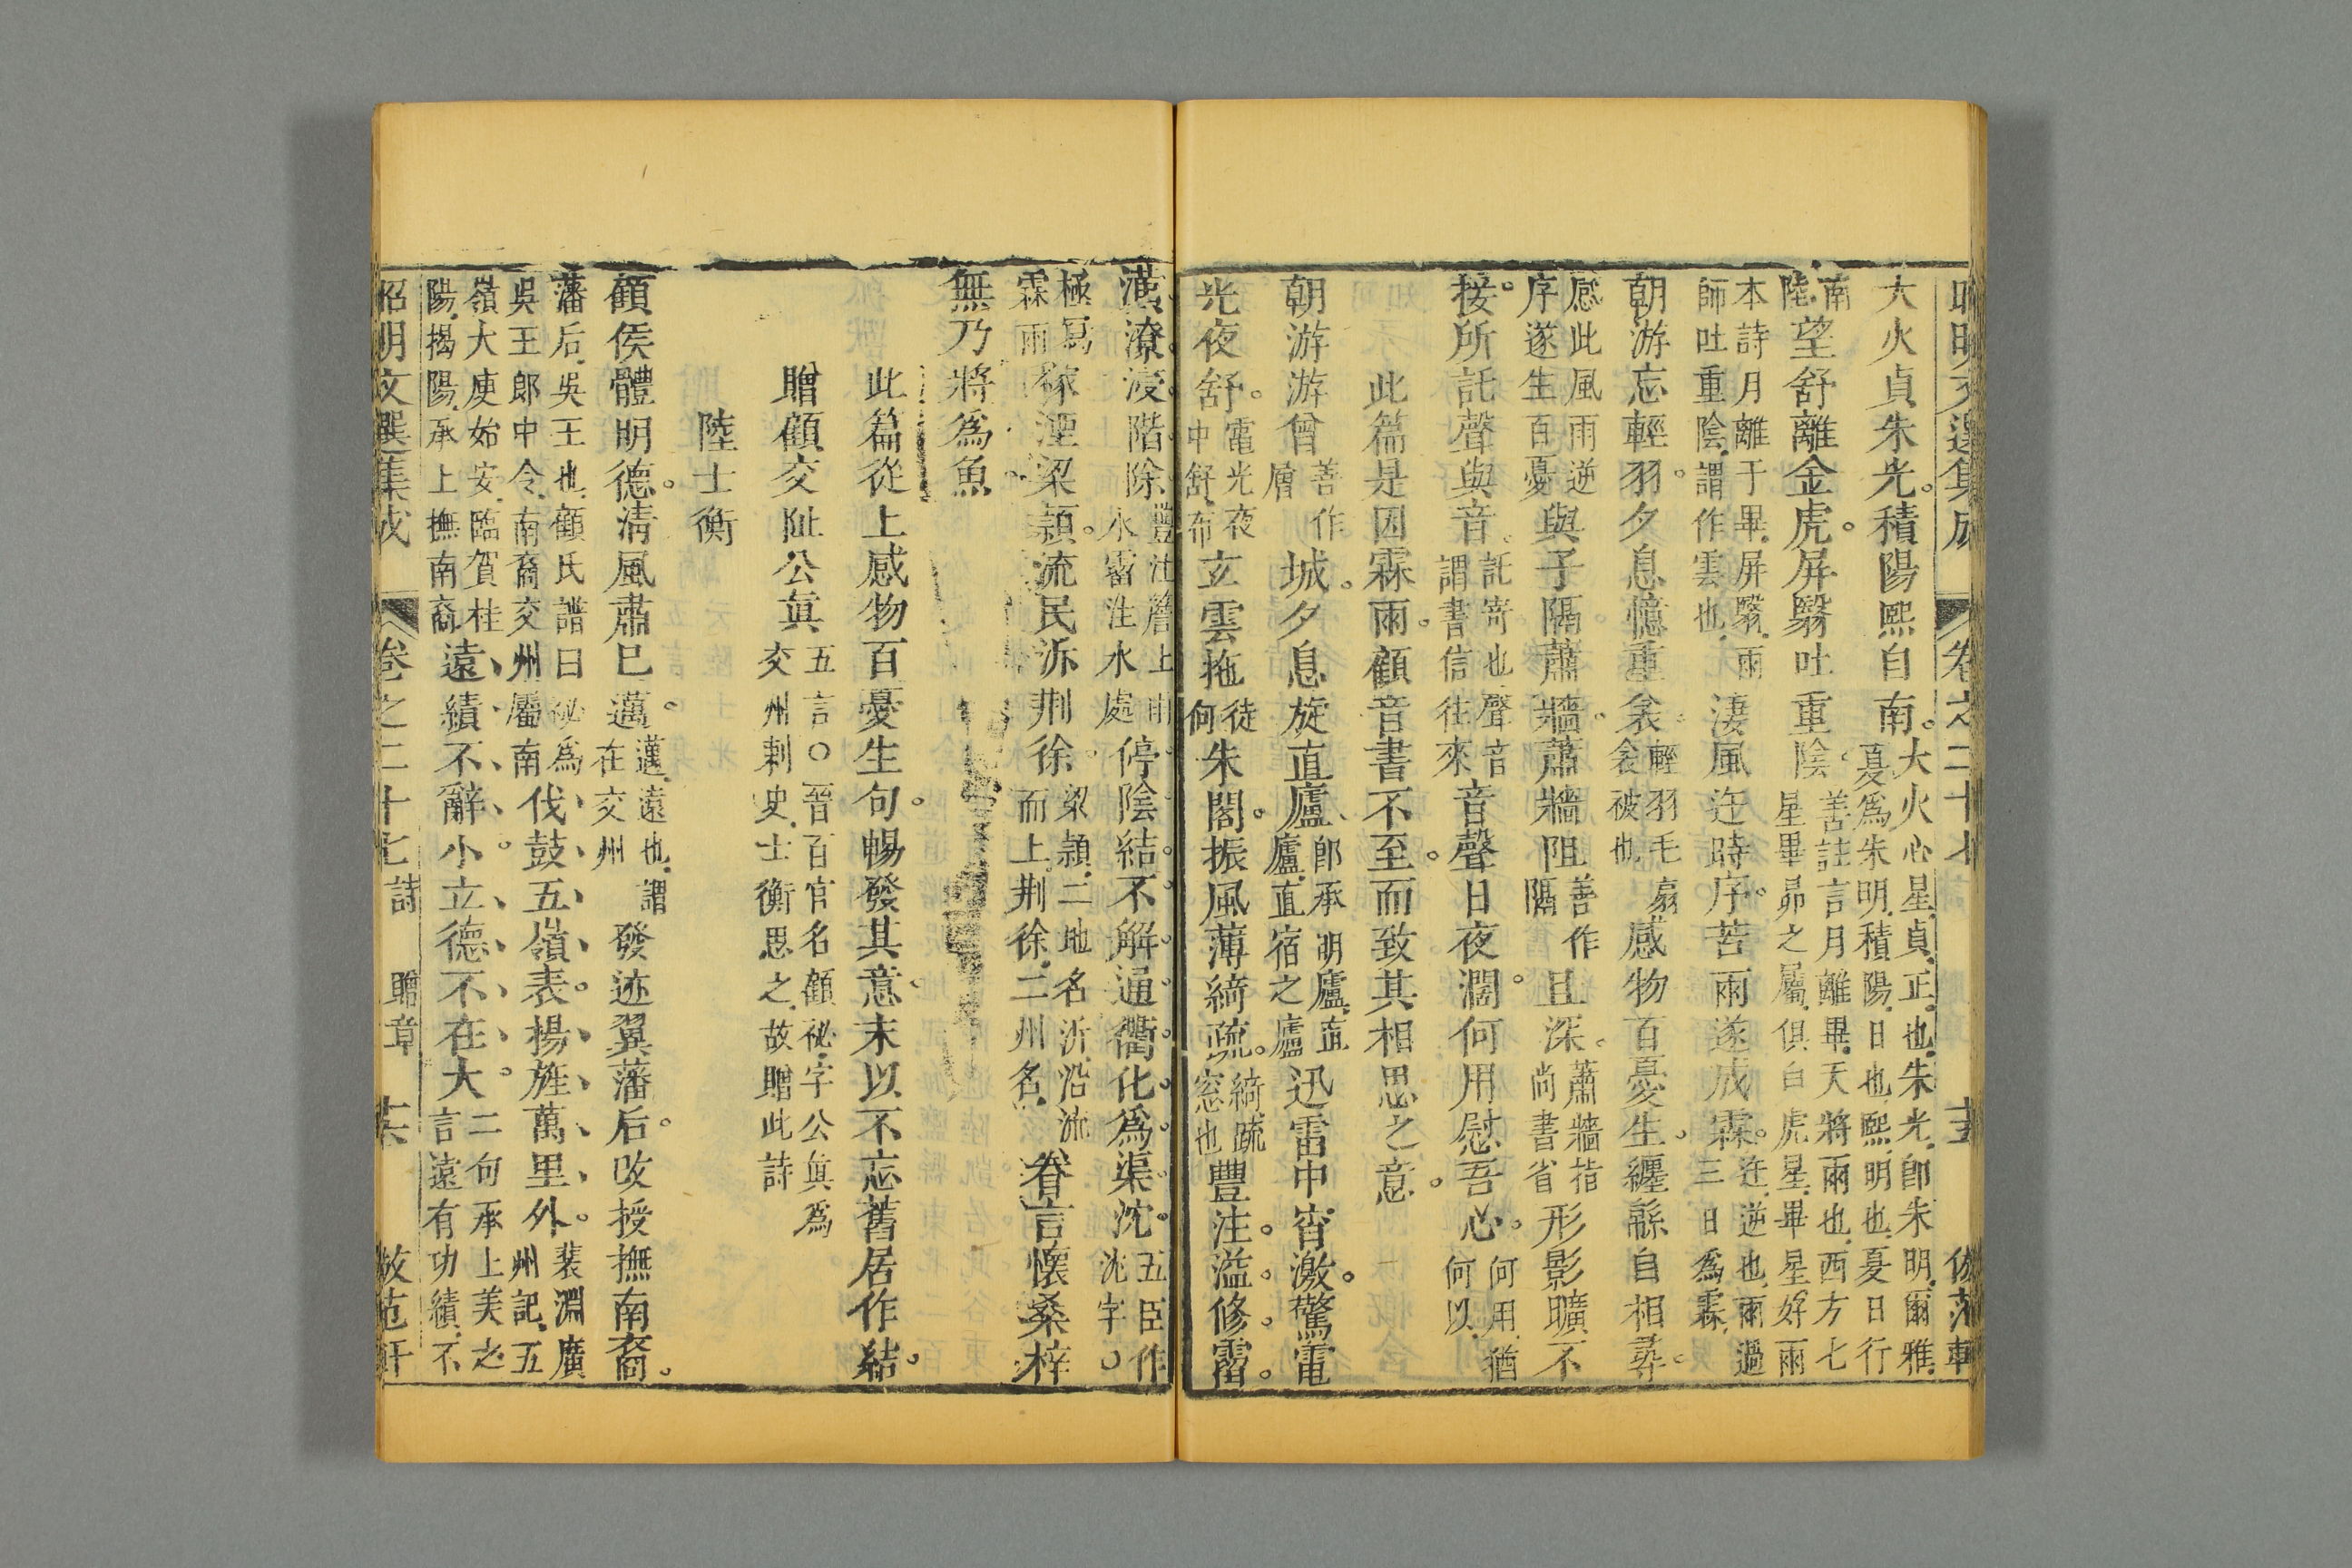 昭明文選集成　卷之二十七　十五　倣范軒
大火貞朱光。積陽熙自南。大火心星。貞、正也。朱光、卽朱明。爾雅、夏爲朱明。積陽、日也。熙、明也。夏日行
南陸望舒離金虎。屏翳吐重陰。善註言月離畢、天將雨也。西方七星畢昴之屬、俱白虎星。畢星好雨
本詩月離于畢。屏翳、雨師吐重陰。謂作雲也。淒風迕時序。苦雨遂成霖。迕、逆也。雨過三日爲霖、
朝游忘輕羽。夕息憶重衾。輕羽毛扇衾被也感物百憂生。纏緜自相尋。
感此風雨逆序遂生百憂與子隔蕭牆。蕭牆阻善作隔且深。蕭牆指尚書省形影曠不
接。所託聲與音。託寄也、聲音謂書信往來音聲日夜濶。何用慰吾心。何用、猶何以
此篇是因霖雨。顧音書不至。而致其相思之意。
朝游游曾善作層城。夕息旋直廬、卽承明廬、直廬。直宿之廬迅雷中宵激。驚電
光夜舒。電光夜中舒布玄雲拖徒何朱閣。振風薄綺疏。綺疏窓也豐注。溢修霤。
潢潦浸階除豐注簷上雨水霤注水水處停陰結不解通衢化爲渠沈五臣作沈字
極寫霖雨稼湮梁潁。流民泝荆徐。梁潁、二地名泝沿流而上。荆徐、二州名、眷言懷桑梓
無乃將爲魚
此篇從上感物百憂生句。暢發其意。末以不忘舊居作結。
贈顧交阯公眞五言○晉百官名顧祕、字公眞爲交州刺史、士衡思之、故贈此詩
陸士衡
顧侯體明德。清風肅巳邁。邁、遠也、謂在交州發迹翼藩后。改授撫南裔。
藩后、吳王也、顧氏譜曰祕爲吳王郎中令、南裔交州屬南伐鼓五嶺表。揚旌萬里外。裴淵廣州記、五
嶺大庾始安、臨賀桂陽、揭陽、承上撫南裔遠績不辭小。立德不在大。二句承上美之言遠有功績、不
昭明文選集成　卷之二十七　詩　贈章　十六　倣范軒